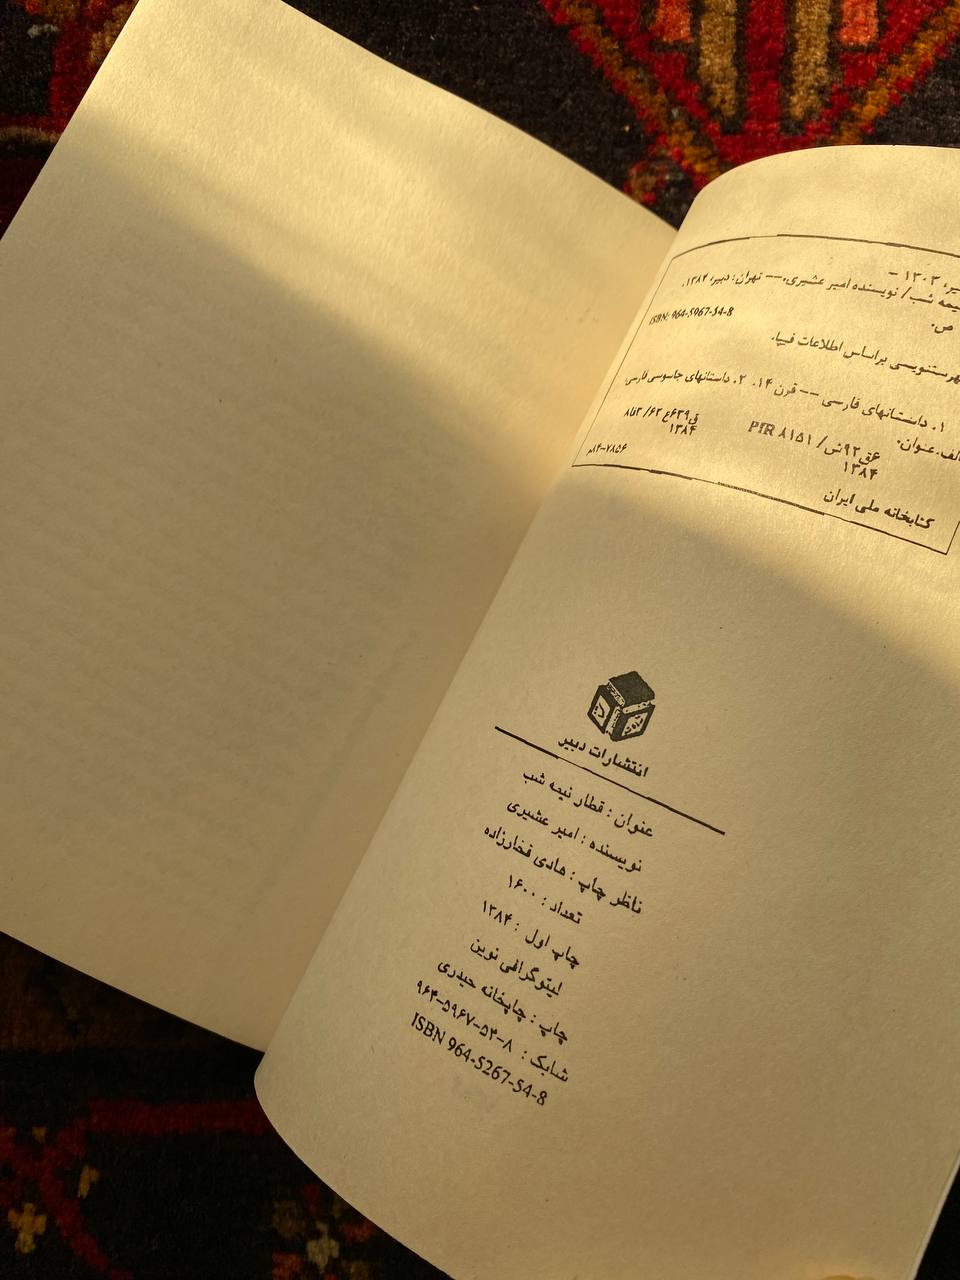 ۱۳۰۳ -
نیمه شب/ نویسنده امیر عشیری.-- تهران: دبیر، ۱۳۸۴.
ص.
ISBN: 964-5967-54-8
فهرستنویسی براساس اطلاعات فیپا.
۱. داستانهای فارسی -- قرن ۱۴. ۲. داستانهای جاسوسی فارسی.
الف.عنوان.
PIR ۸۱۵۱ /ش۹۲ق۶ ۸فا۳ /۶۲ ع۶۳۹ق
۱۳۸۴ ۱۳۸۴
م۸۴-۷۸۵۶
کتابخانه ملی ایران
انتشارات دبیر
عنوان : قطار نیمه شب
نویسنده : امیر عشیری
ناظر چاپ : هادی فخارزاده
تعداد : ۱۶۰۰
چاپ اول : ۱۳۸۴
لیتوگرافی نوین
چاپ : چاپخانه حیدری
شابک : ۸-۵۴-۵۹۶۷-۹۶۴
ISBN 964-5267-54-8